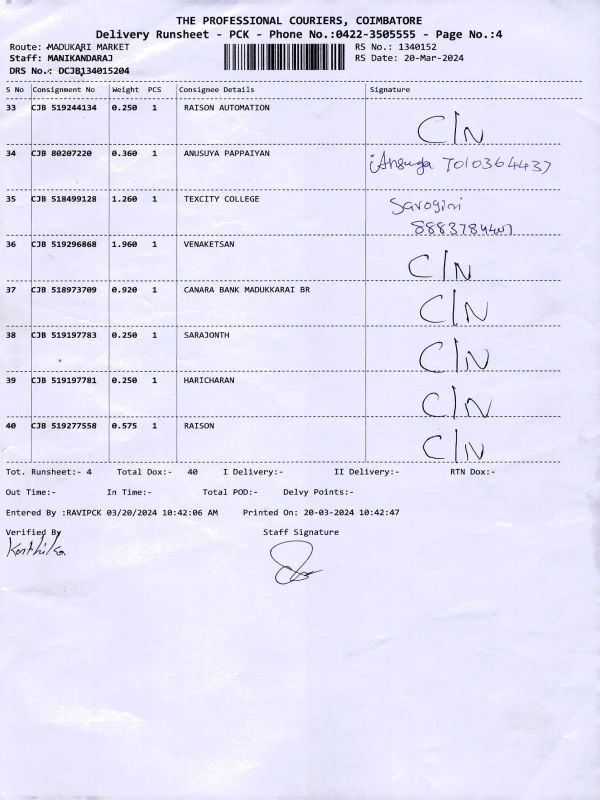 THE PROFESSIONAL COURIERS, COIMBATORE
Delivery Runsheet - PCK - Phone No.:0422-3505555 - Page No.:4
Route: MADUKARI MARKET RS No.: 1340152
Staff: MANIKANDARAJ RS Date: 20-Mar-2024
DRS No.: DCJB134015204
S No Consignment No Weight PCS Consignee Details Signature
33 CJB 519244134 0.250 1 RAISON AUTOMATION C/N
34 CJB 80207220 0.360 1 ANUSUYA PAPPAIYAN 7010364437
35 CJB 518499128 1.260 1 TEXCITY COLLEGE Sarogini
36 CJB 519296868 1.960 1 VENAKETSAN C/N
37 CJB 518973709 0.920 1 CANARA BANK MADUKKARAI BR C/N
38 CJB 519197783 0.250 1 SARAJONTH C/N
39 CJB 519197781 0.250 1 HARICHARAN C/N
40 CJB 519277558 0.575 1 RAISON C/N
Tot. Runsheet:- 4 Total Dox:- 40 I Delivery:- II Delivery:- RTN Dox:-
Out Time:- In Time:- Total POD:- Delvy Points:-
Entered By :RAVIPCK 03/20/2024 10:42:06 AM Printed On: 20-03-2024 10:42:47
Verified By Staff Signature
Karthika